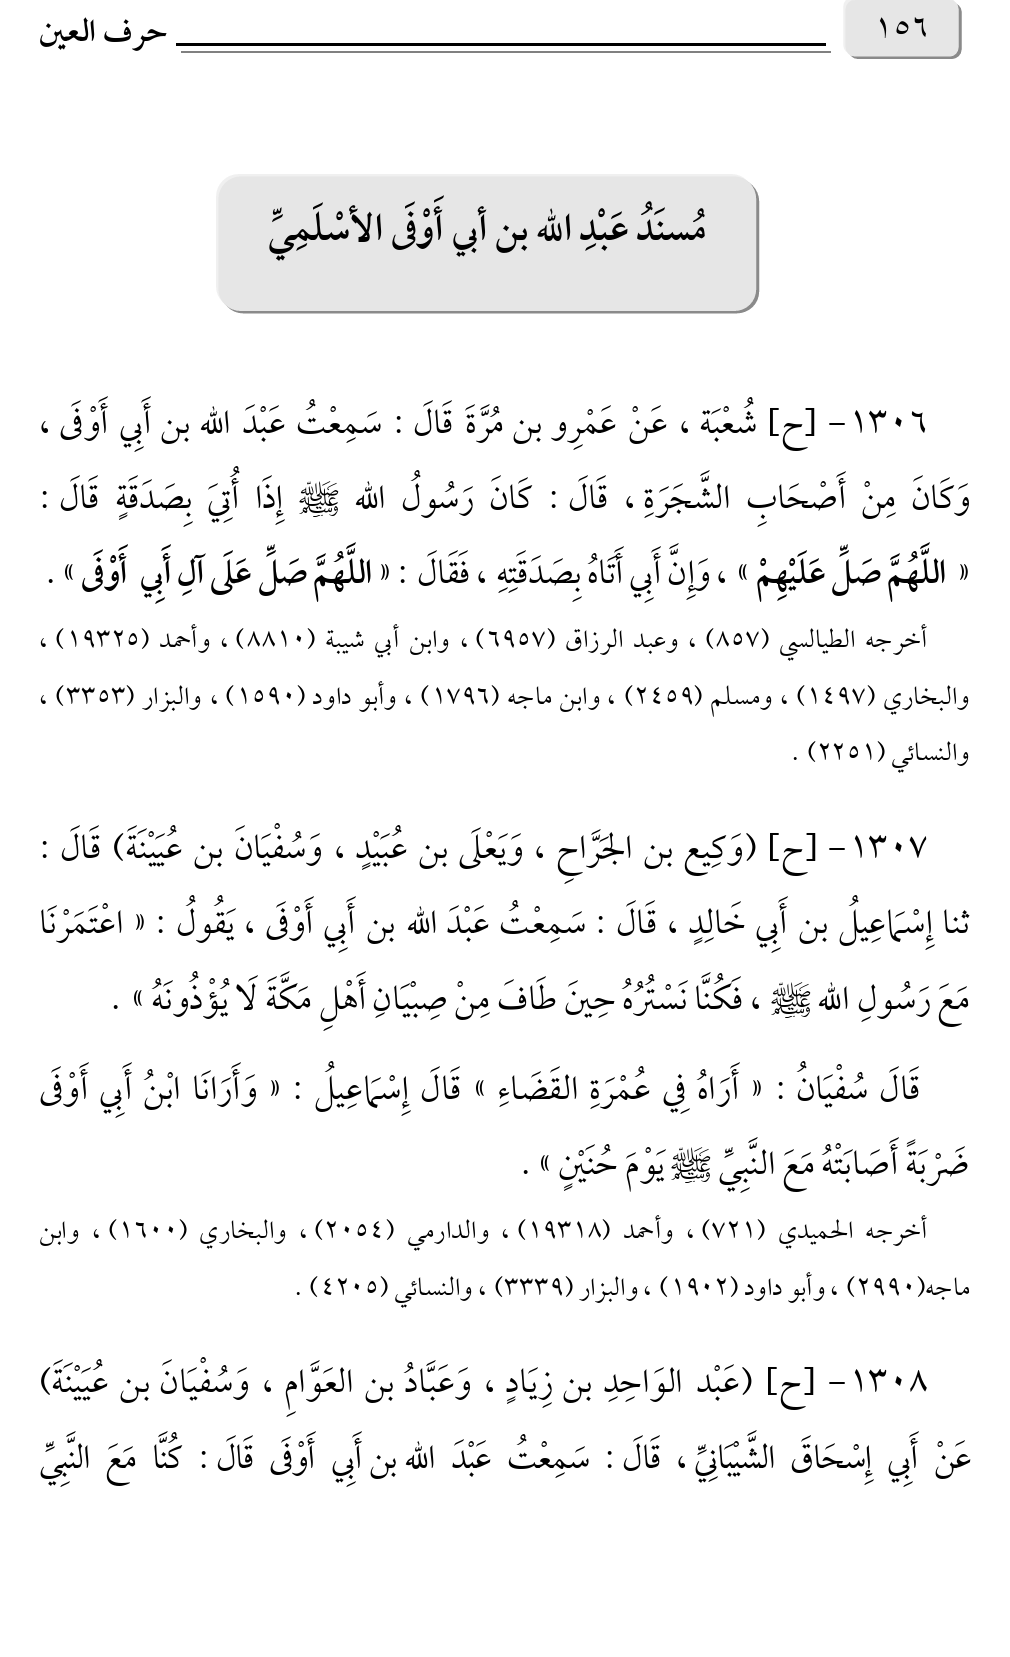 ١٥٦
حرف العين
مُسنَدُ عَبْدِ الله بن أبي أَوْفَى الأسْلَمِيِّ
١٣٠٦- [ح] شُعْبَة ، عَنْ عَمْرِو بن مُرَّةَ قَالَ : سَمِعْتُ عَبْدَ الله بن أَبِي أَوْفَى ،
وَكَانَ مِنْ أَصْحَابِ الشَّجَرَةِ ، قَالَ : كَانَ رَسُولُ الله ﷺ إِذَا أُتِيَ بِصَدَقَةٍ قَالَ :
« اللَّهُمَّ صَلِّ عَلَيْهِمْ » ، وَإِنَّ أَبِي أَتَاهُ بِصَدَقَتِهِ ، فَقَالَ : « اللَّهُمَّ صَلِّ عَلَى آلِ أَبِي أَوْفَى » .
أخرجه الطيالسي (٨٥٧) ، وعبد الرزاق (٦٩٥٧) ، وابن أبي شيبة (٨٨١٠) ، وأحمد (١٩٣٢٥) ،
والبخاري (١٤٩٧) ، ومسلم (٢٤٥٩) ، وابن ماجه (١٧٩٦) ، وأبو داود (١٥٩٠) ، والبزار (٣٣٥٣) ،
والنسائي (٢٢٥١) .
١٣٠٧- [ح] (وَكِيع بن الجَرَّاحِ ، وَيَعْلَى بن عُبَيْدٍ ، وَسُفْيَانَ بن عُيَيْنَةَ) قَالَ :
ثنا إِسْمَاعِيلُ بن أَبِي خَالِدٍ ، قَالَ : سَمِعْتُ عَبْدَ الله بن أَبِي أَوْفَى ، يَقُولُ : « اعْتَمَرْنَا
مَعَ رَسُولِ الله ﷺ ، فَكُنَّا نَسْتُرُهُ حِينَ طَافَ مِنْ صِبْيَانِ أَهْلِ مَكَّةَ لَا يُؤْذُونَهُ » .
قَالَ سُفْيَانُ : « أَرَاهُ فِي عُمْرَةِ القَضَاءِ » قَالَ إِسْمَاعِيلُ : « وَأَرَانَا ابْنُ أَبِي أَوْفَى
ضَرْبَةً أَصَابَتْهُ مَعَ النَّبِيِّ ﷺ يَوْمَ حُنَيْنٍ » .
أخرجه الحميدي (٧٢١) ، وأحمد (١٩٣١٨) ، والدارمي (٢٠٥٤) ، والبخاري (١٦٠٠) ، وابن
ماجه(٢٩٩٠) ، وأبو داود (١٩٠٢) ، والبزار (٣٣٣٩) ، والنسائي (٤٢٠٥) .
١٣٠٨- [ح] (عَبْد الوَاحِدِ بن زِيَادٍ ، وَعَبَّادُ بن العَوَّامِ ، وَسُفْيَانَ بن عُيَيْنَةَ)
عَنْ أَبِي إِسْحَاقَ الشَّيْبَانِيِّ ، قَالَ : سَمِعْتُ عَبْدَ الله بن أَبِي أَوْفَى قَالَ : كُنَّا مَعَ النَّبِيِّ